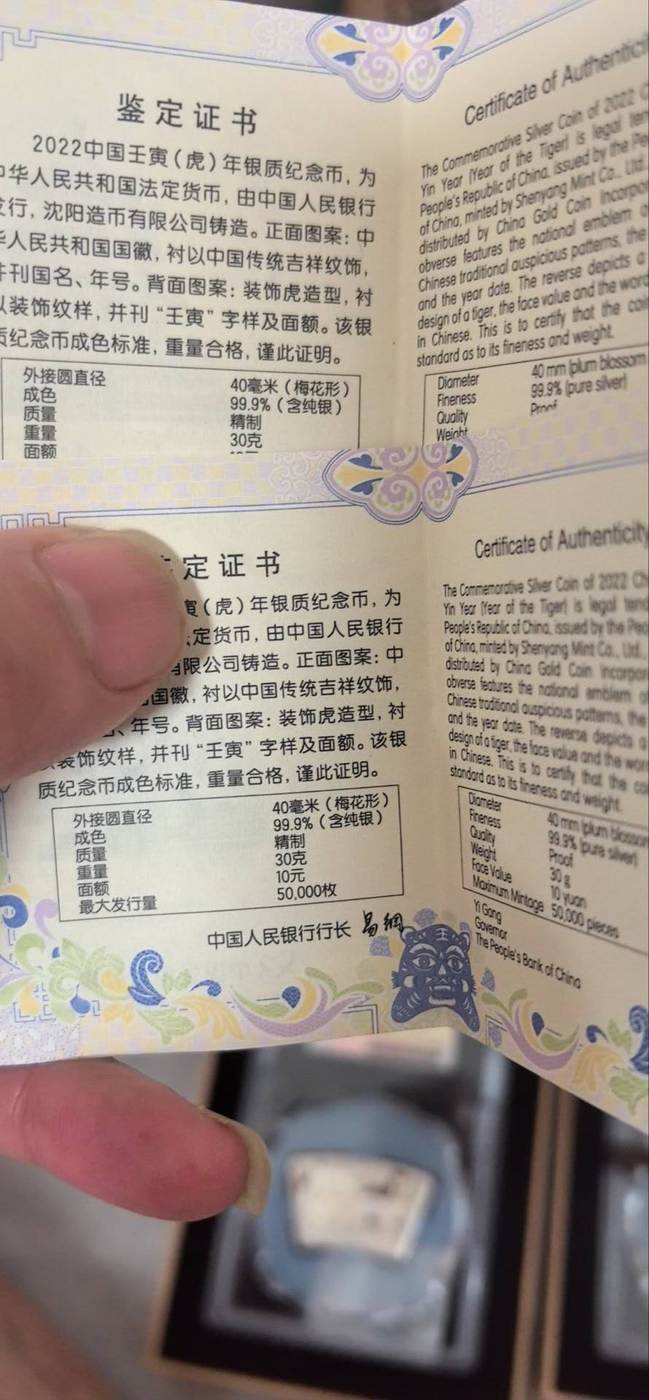 鉴定证书
2022中国壬寅（虎）年银质纪念币，为
华人民共和国法定货币，由中国人民银行
发行，沈阳造币有限公司铸造。正面图案：中
华人民共和国国徽，衬以中国传统吉祥纹饰，
并刊国名、年号。背面图案：装饰虎造型，衬
以装饰纹样，并刊“壬寅”字样及面额。该银
质纪念币成色标准，重量合格，谨此证明。
外接圆直径 40毫米（梅花形）
成色 99.9%（含纯银）
质量 精制
重量 30克
面额
Certificate of Authenticit
The Commemorative Silver Coin of 2022 C
Yin Year (Year of the Tiger) is legal ten
People's Republic of China, issued by the Pe
of China, minted by Shenyang Mint Co., Ltd.
distributed by China Gold Coin Incorpor
obverse features the national emblem o
Chinese traditional auspicious patterns, the
and the year date. The reverse depicts a
design of a tiger, the face value and the word
in Chinese. This is to certify that the coin
standard as to its fineness and weight.
Diameter 40 mm (plum blossom
Fineness 99.9% (pure silver)
Quality Proof
Weight
定证书
寅（虎）年银质纪念币，为
定货币，由中国人民银行
有限公司铸造。正面图案：中
国徽，衬以中国传统吉祥纹饰，
、年号。背面图案：装饰虎造型，衬
以装饰纹样，并刊“壬寅”字样及面额。该银
质纪念币成色标准，重量合格，谨此证明。
外接圆直径 40毫米（梅花形）
成色 99.9%（含纯银）
质量 精制
重量 30克
面额 10元
最大发行量 50,000枚
中国人民银行行长 易纲
Certificate of Authenticity
The Commemorative Silver Coin of 2022 Ch
Yin Year (Year of the Tiger) is legal tend
People's Republic of China, issued by the Peo
of China, minted by Shenyang Mint Co., Ltd.
distributed by China Gold Coin Incorpor
obverse features the national emblem of
Chinese traditional auspicious patterns, the
and the year date. The reverse depicts a
design of a tiger, the face value and the word
in Chinese. This is to certify that the co
standard as to its fineness and weight.
Diameter 40 mm (plum blossom
Fineness 99.9% (pure silver)
Quality Proof
Weight 30 g
Face Value 10 yuan
Maximum Mintage 50,000 pieces
Yi Gang
Governor
The People's Bank of China